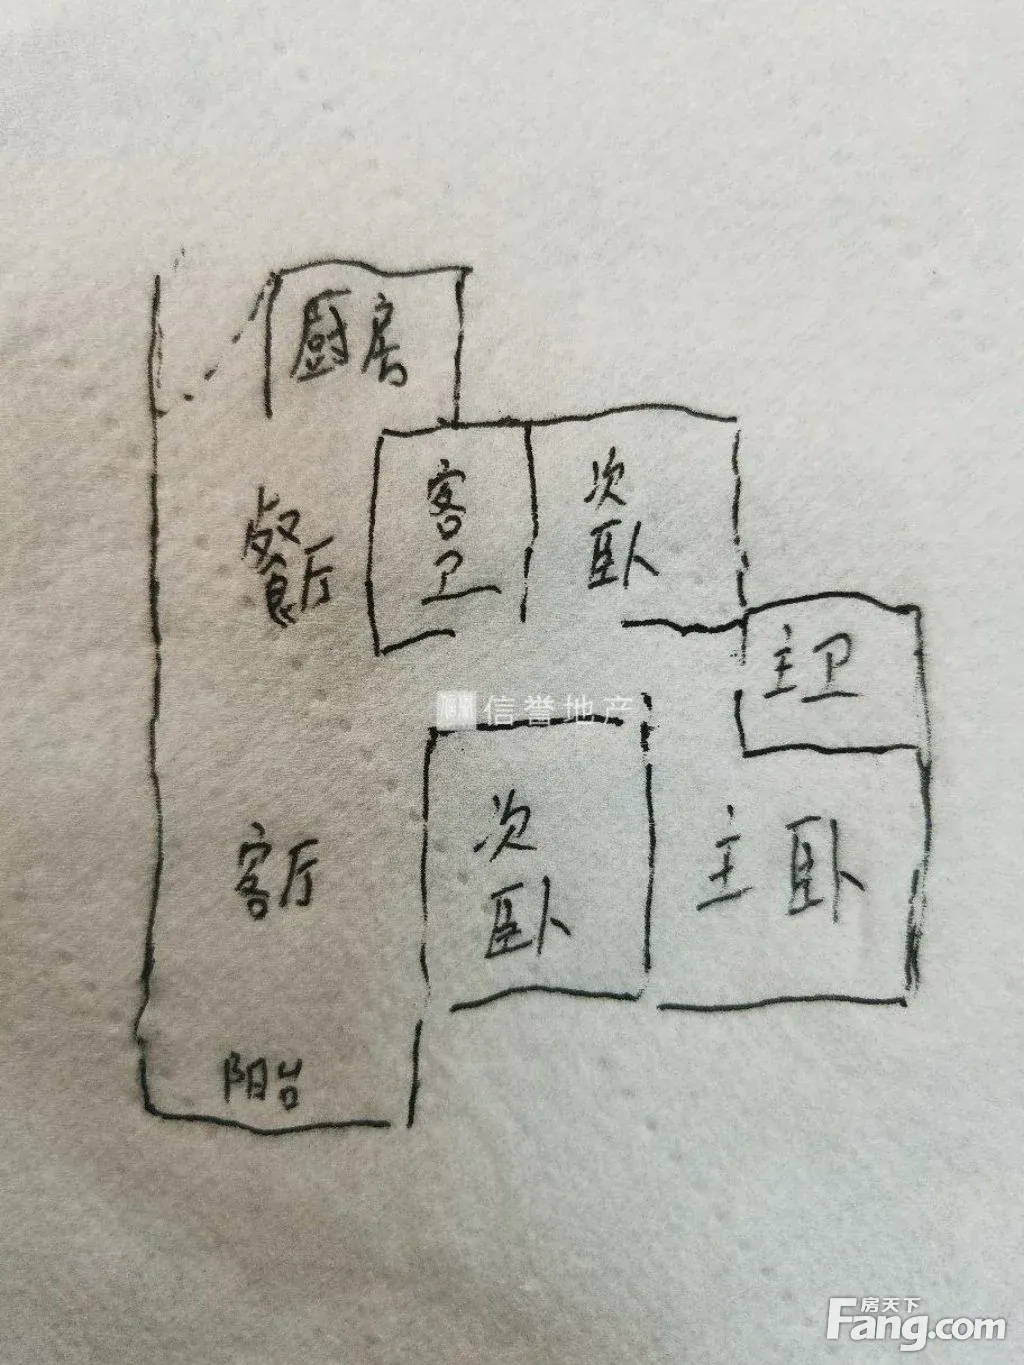 厨房
客卫
次卧
餐厅
主卫
信誉地产
客厅
次卧
主卧
阳台
房天下
Fang.com